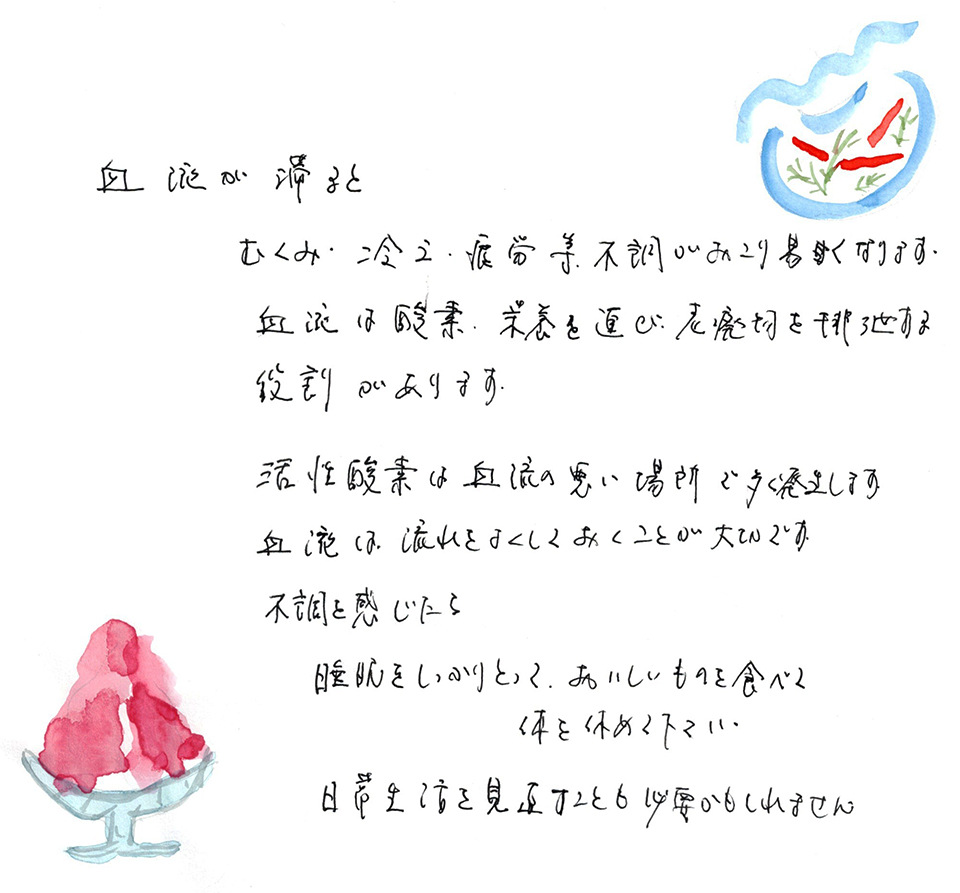 血流が滞ると
むくみ・冷え・疲労等不調がおこり易くなります.
血流は酸素.栄養を運び.老廃物を排泄する
役割があります.
活性酸素は血流の悪い場所で多く発生します
血流は.流れをよくしておくことが大切です.
不調を感じたら
睡眠をしっかりとって.おいしいものを食べて
体を休めて下さい.
日常生活を見直すことも必要かもしれません